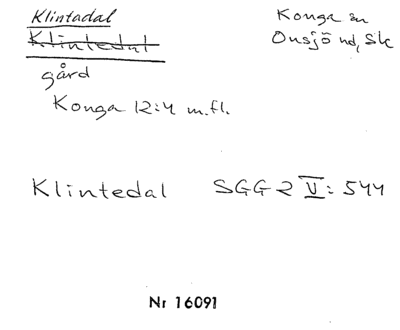 Klintadal
Klintedal
gård
Konga 12:4 m.fl.
Konga sn
Onsjö hd, Sk
Klintedal SGG 2 V: 544
Nr 16091